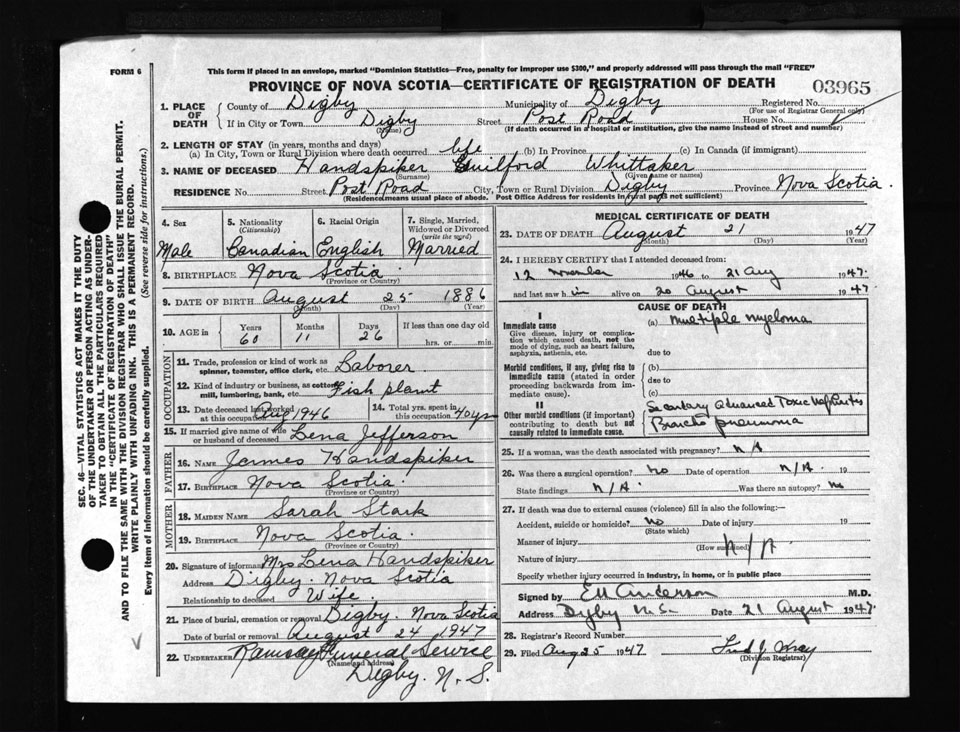 FORM 6
This form if placed in an envelope, marked "Dominion Statistics—Free, penalty for improper use $300," and properly addressed will pass through the mail "FREE"
PROVINCE OF NOVA SCOTIA—CERTIFICATE OF REGISTRATION OF DEATH
03965
1. PLACE OF DEATH County of Digby Municipality of Digby Registered No.
(For use of Registrar General only)
If in City or Town Digby Street Post Road House No.
(Name) (If death occurred in a hospital or institution, give the name instead of street and number)
2. LENGTH OF STAY (in years, months and days)
(a) In City, Town or Rural Division where death occurred life (b) In Province (c) In Canada (if immigrant)
3. NAME OF DECEASED Handspiker Guilford Whittaker
(Surname) (Given name or names)
RESIDENCE No. Street Post Road City, Town or Rural Division Digby Province Nova Scotia
(Residence means usual place of abode. Post Office Address for residents in rural parts not sufficient)
4. Sex Male
5. Nationality (Citizenship) Canadian
6. Racial Origin English
7. Single, Married, Widowed or Divorced (write the word) Married
8. BIRTHPLACE Nova Scotia
(Province or Country)
9. DATE OF BIRTH August 25 1886
(Month) (Day) (Year)
10. AGE in Years 60 Months 11 Days 26 If less than one day old hrs. or min.
OCCUPATION
11. Trade, profession or kind of work as spinner, teamster, office clerk, etc. Laborer
12. Kind of industry or business, as cotton mill, lumbering, bank, etc. Fish plant
13. Date deceased last worked at this occupation Aug 1946
14. Total yrs. spent in this occupation 40 yrs
15. If married give name of wife or husband of deceased Lena Jefferson
FATHER
16. NAME James Handspiker
17. BIRTHPLACE Nova Scotia
(Province or Country)
MOTHER
18. MAIDEN NAME Sarah Stark
19. BIRTHPLACE Nova Scotia
(Province or Country)
20. Signature of informant Mrs Lena Handspiker
Address Digby. Nova Scotia
Relationship to deceased Wife.
21. Place of burial, cremation or removal Digby. Nova Scotia
Date of burial or removal August 24 1947
22. UNDERTAKER Ramsay Funeral Service
(Name and address)
Digby. N. S.
MEDICAL CERTIFICATE OF DEATH
23. DATE OF DEATH August 21 1947
(Month) (Day) (Year)
24. I HEREBY CERTIFY that I attended deceased from:
12 November 1946 to 21 Aug 1947
and last saw him alive on 20 August 1947
CAUSE OF DEATH
I
Immediate cause (a) multiple myeloma
Give disease, injury or complication which caused death, not the mode of dying, such as heart failure, asphyxia, asthenia, etc.
due to
Morbid conditions, if any, giving rise to immediate cause (stated in order proceeding backwards from immediate cause).
(b)
due to
(c)
II
Other morbid conditions (if important) contributing to death but not causally related to immediate cause.
Secondary Advanced Toxic
Broncho pneumonia
25. If a woman, was the death associated with pregnancy? N A
26. Was there a surgical operation? no Date of operation N/A. 19
State findings N/A. Was there an autopsy? no
27. If death was due to external causes (violence) fill in also the following:—
Accident, suicide or homicide? no Date of injury 19
(State which)
Manner of injury N/A
(How sustained)
Nature of injury
Specify whether injury occurred in industry, in home, or in public place
Signed by E M Anderson M.D.
Address Digby N.S. Date 21 August 1947
28. Registrar's Record Number
29. Filed Aug 25 1947 Fred J. Wray
(Division Registrar)
SEC. 46—VITAL STATISTICS ACT MAKES IT THE DUTY
OF THE UNDERTAKER OR PERSON ACTING AS UNDERTAKER TO OBTAIN ALL THE PARTICULARS REQUIRED
IN THE "CERTIFICATE OF REGISTRATION OF DEATH"
AND TO FILE THE SAME WITH THE DIVISION REGISTRAR WHO SHALL ISSUE THE BURIAL PERMIT.
WRITE PLAINLY WITH UNFADING INK. THIS IS A PERMANENT RECORD.
Every item of information should be carefully supplied. (See reverse side for instructions.)